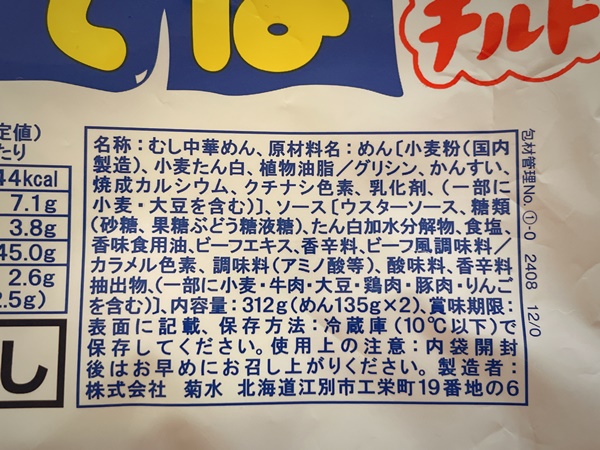 そば
チルド
定値)
たり
44kcal
7.1g
3.8g
45.0g
2.6g
2.5g)
し
名称：むし中華めん、原材料名：めん〔小麦粉(国内
製造)、小麦たん白、植物油脂／グリシン、かんすい、
焼成カルシウム、クチナシ色素、乳化剤、(一部に
小麦・大豆を含む)〕、ソース〔ウスターソース、糖類
(砂糖、果糖ぶどう糖液糖)、たん白加水分解物、食塩、
香味食用油、ビーフエキス、香辛料、ビーフ風調味料／
カラメル色素、調味料(アミノ酸等)、酸味料、香辛料
抽出物、(一部に小麦・牛肉・大豆・鶏肉・豚肉・りんご
を含む)〕、内容量：312g(めん135g×2)、賞味期限：
表面に記載、保存方法：冷蔵庫(10℃以下)で
保存してください。使用上の注意：内袋開封
後はお早めにお召し上がりください。製造者：
株式会社 菊水 北海道江別市工栄町19番地の6
包材管理No.①-0 2408 12/0